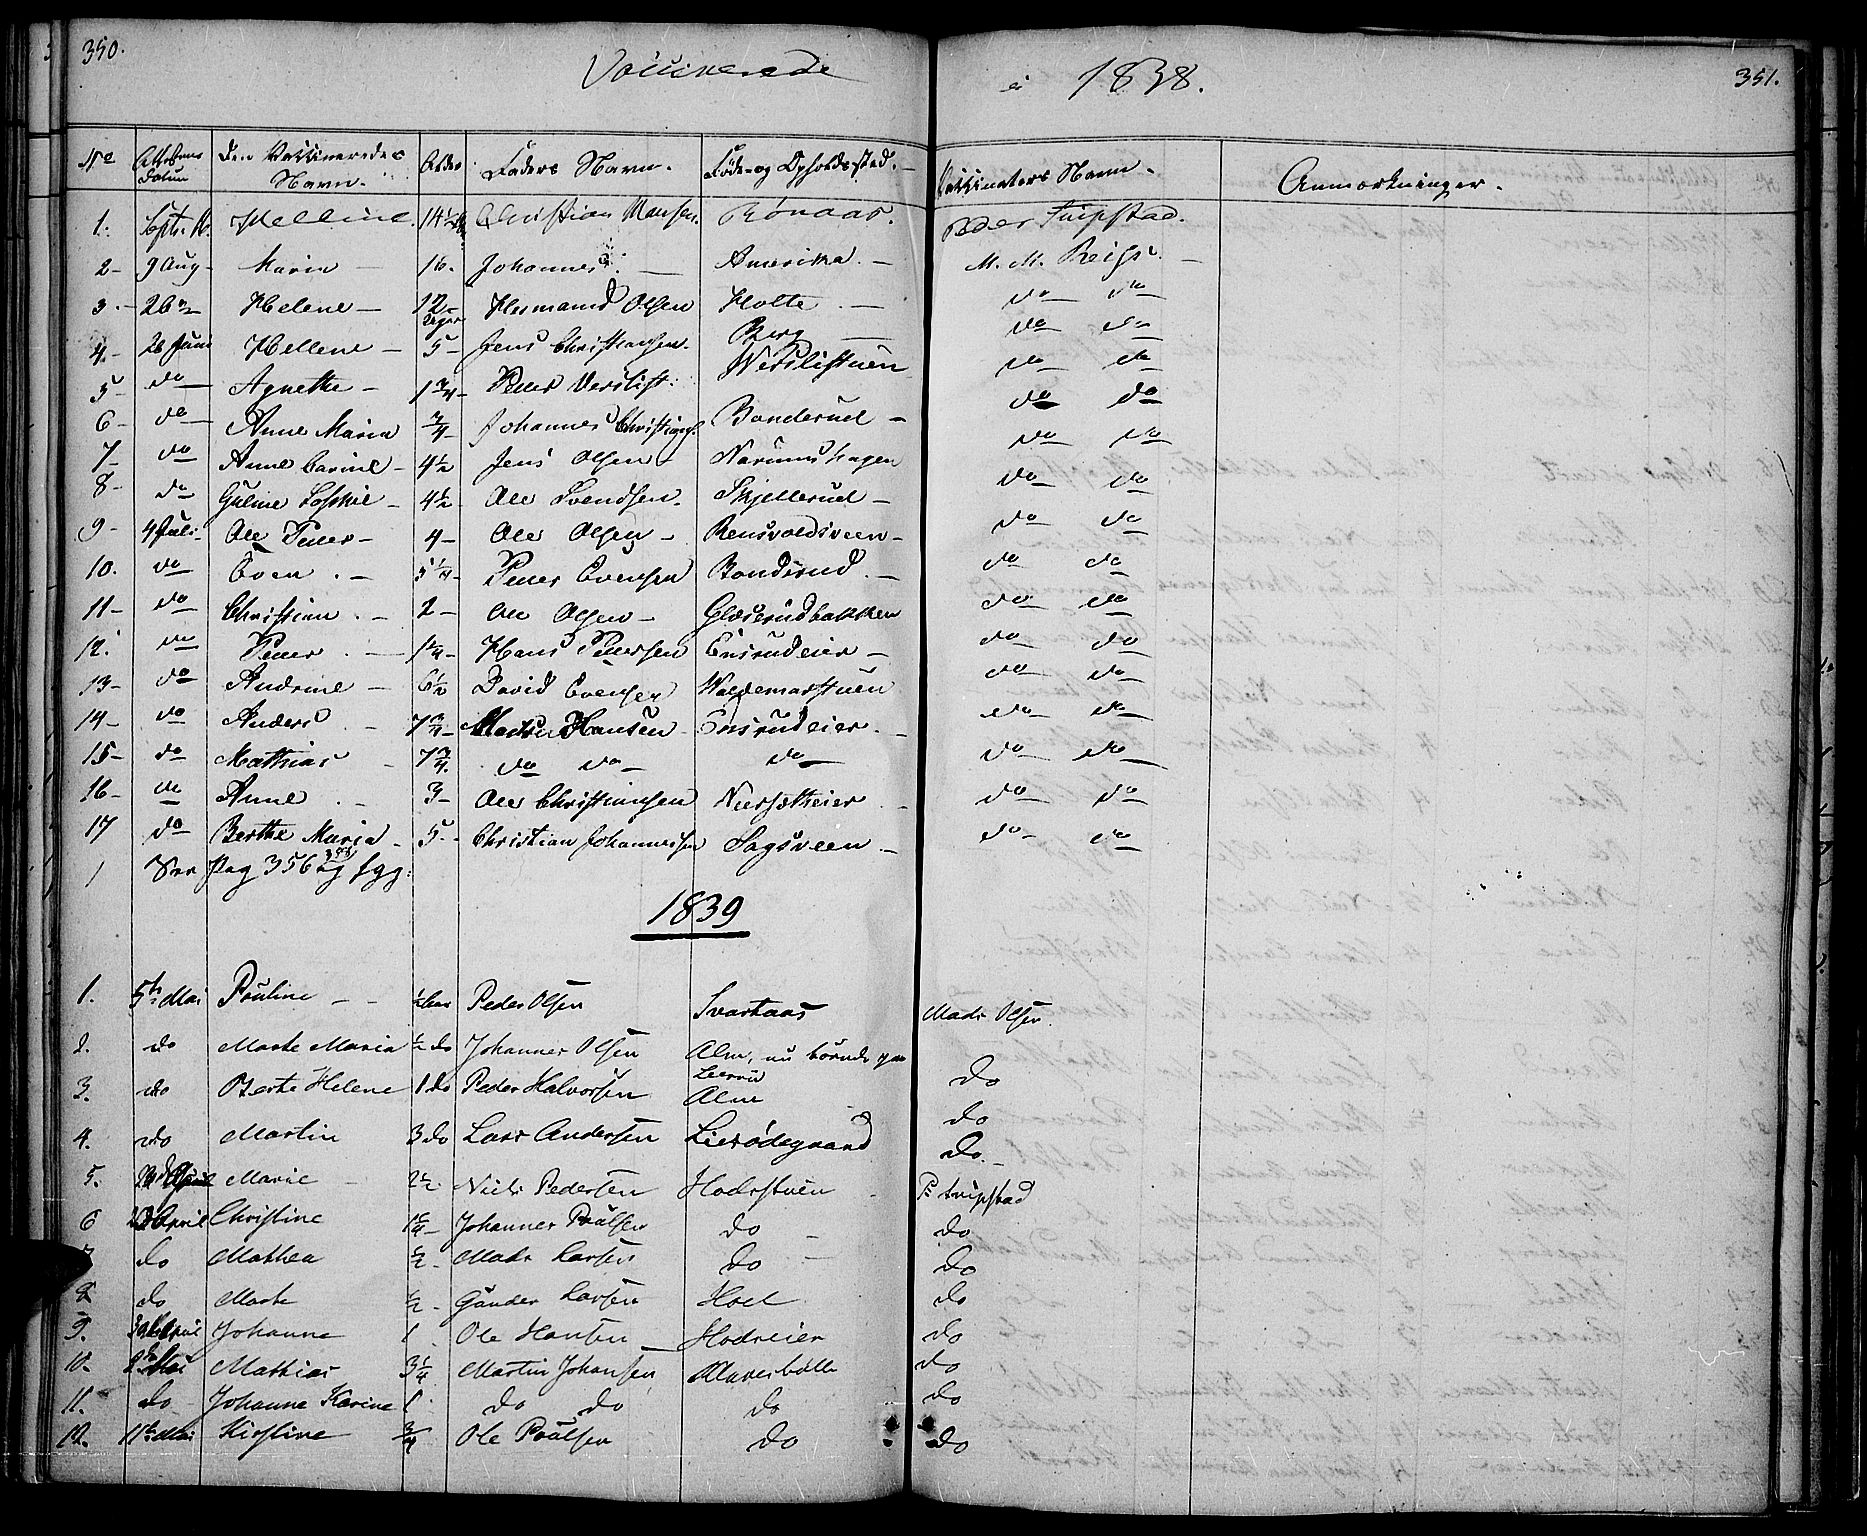 350.
Vaccinerede i 1838.
351.
No Attestens Datum Den Vaccineredes Navn. Alder Faders Navn. Føde- og Opholdssted. Vaccinators Navn. Anmærkninger.
1. Septr. Helline. 14 1/2 Christian Rønaas. Peder Tripstad.
2- 9 Aug- Maria 16. Johannes Amerika. M. M.
3. 26 Helene 12 Hermand Olsen Holte do do
4- 26 Juni Hellene 5- Jens Christiansen. Berg do do
5- do Agnethe 1 3/4 Peder do do
6- do Anne Maria 3/4 Johannes Christians. Bonderud do do
7- do Anne Carine 4 1/2 Jens Olsen do do
8- do Guline Sophie 4 1/2 Ole Svendsen Skjellerud do do
9- 4 Juli Ole Peder 4- Ole Olsen Rensvoldsveen do do
10. do Even 5 1/4 Peder Evensen Bondrud do do
11- do Christian 2- Ole Olsen Glæserudbakken do do
12. do Peder 1 1/4 Hans Pedersen Ensrudeier do do
13- do Andrine 6 1/2 David Evensen Waldemarstuen do do
14- do Anders 7 3/4 Hansen Ensrudeier do do
15- do Mathias 7 3/4 do do do do do
16- do Anne 3- Ole Christiansen do do
17 do Berthe Maria 5- Christian Johannessen Sagsveen do do
See Pag 356 og fgg:
1839
1. 5te Mai Pauline 1/2 Aar Peder Olsen Svartaas Mads Olsen.
2. do Marte Maria 1/2 do Johannes Olsen Alm, nu do
3. do Berte Helene 1 do Peder Halvorsen Alm do
4. do Martin 3 do Lars Andersen Lierødegaard do
5. April Marie 2 1/2 Niels Pedersen Hodrstuen P. Tripstad
6 April Christine 1 1/4 Johannes Paulsen do do
7. do Mathea 1/2 Mads Larsen do do
8 do Marte 1/2 Gunder Larsen Hoel do
9. April Johanne 1 Ole Hansen Hodreier do
10. Mai Mathias 3 1/4 Martin Johansen do
11. do Johanne Karine 1 do do do do
12. 11te Mai Kirstine 3/4 Ole Paulsen do do